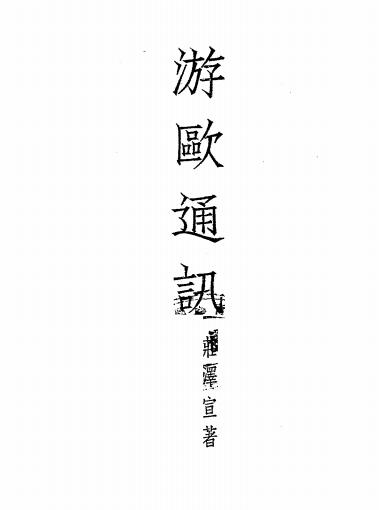 游歐通訊
莊澤宣著